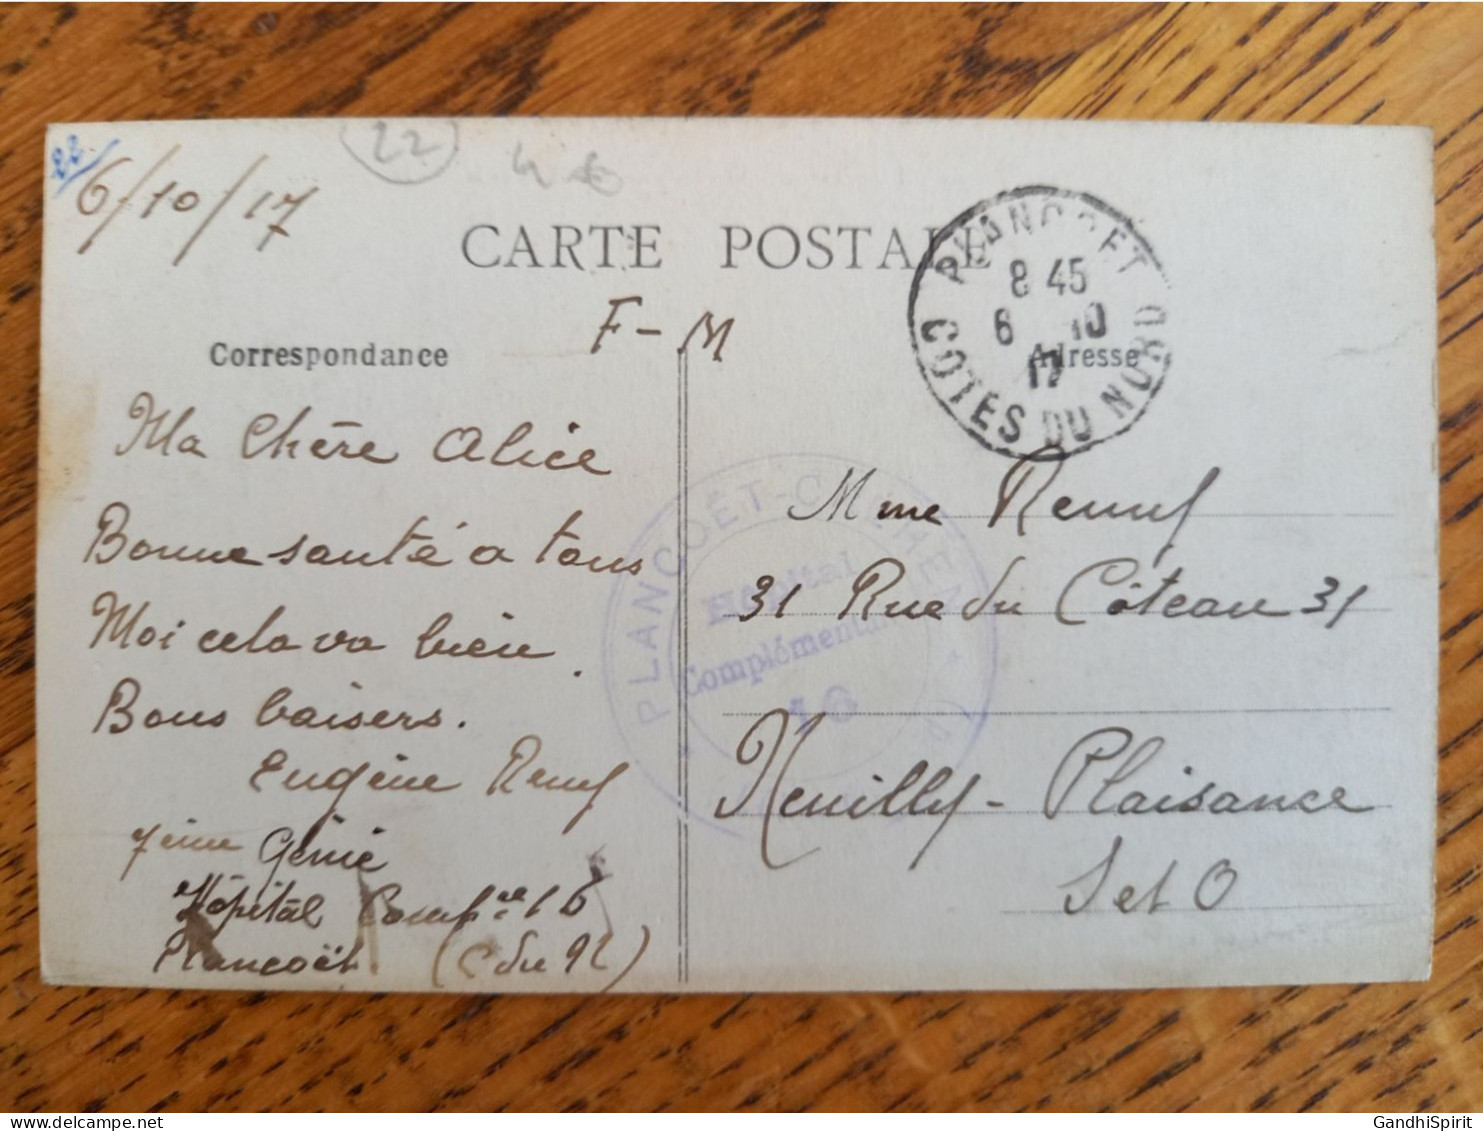 22
6/10/17
22
CARTE POSTALE
F-M
PLANCOET
8 45
6 10
17
COTES DU NORD
Correspondance
Adresse
Ma Chère Alice
Bonne santé a tous
Moi cela va bien.
Bons baisers.
Eugène
7ème Génie
Hôpital Compre 16
Plancoët. (C du N)
PLANCOËT
Hôpital
Complémentaire
16
Mme
31 Rue du Côteau 31
Neuilly-Plaisance
S et O
delcampe.net
GandhiSpirit